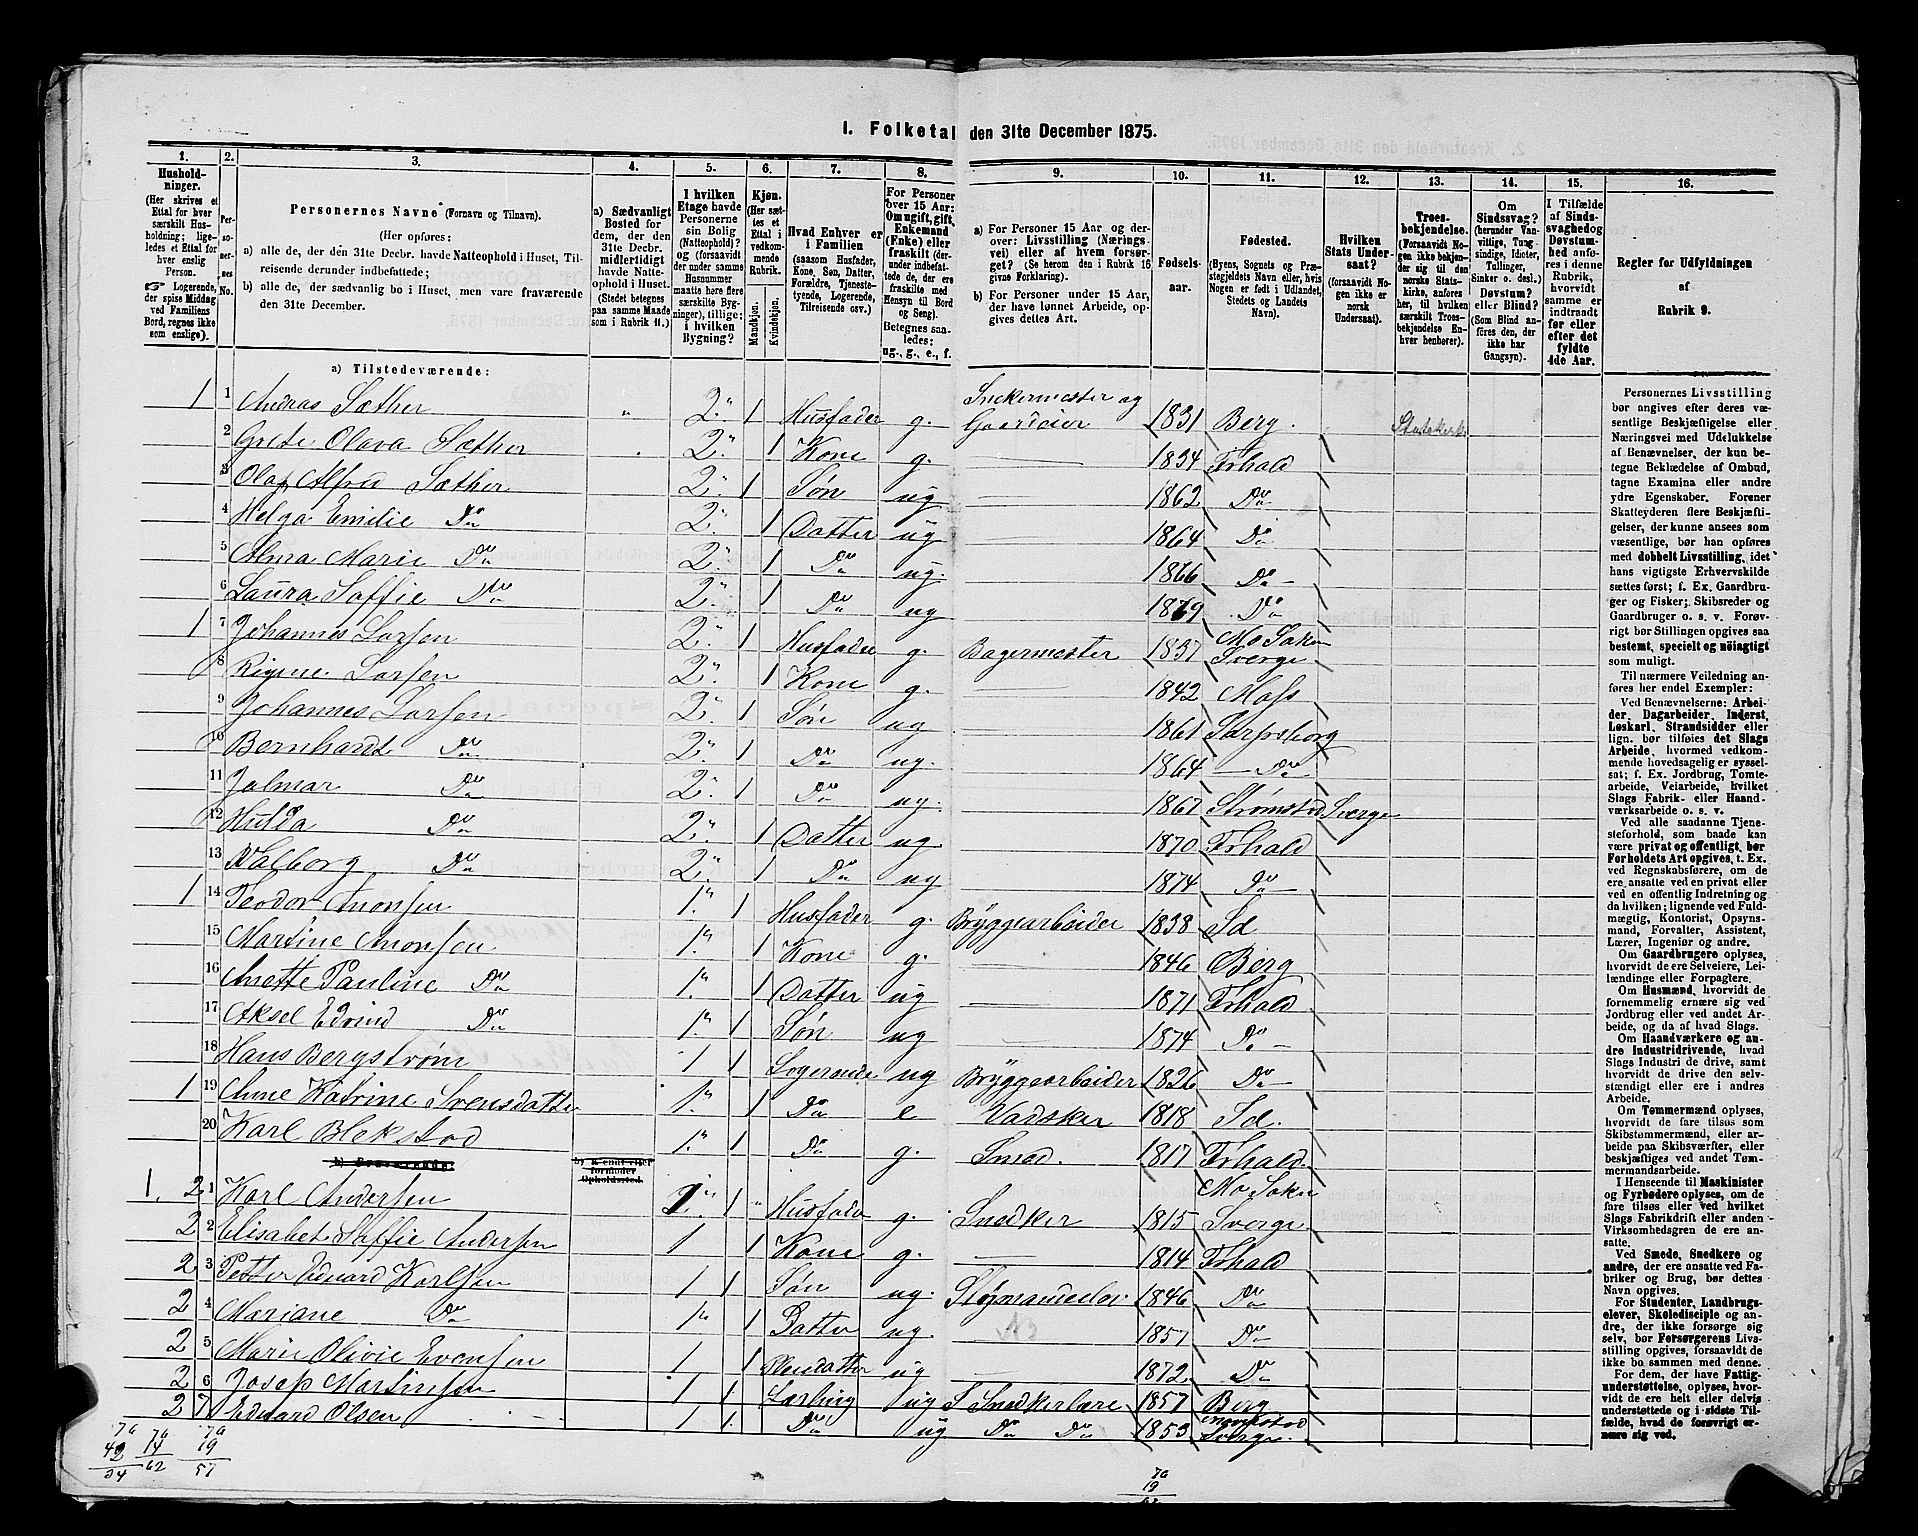 I. Folketal den 31te December 1875.
1. 2. 3. 4. 5. 6. 7. 8. 9. 10. 11. 12. 13. 14. 15. 16.
Husholdninger. (Her skrives et Ettal for hver særskilt Husholdning; ligeledes et Ettal for hver enslig Person. Logerende, der spise Middag ved Familiens Bord, regnes ikke som enslige).
Personernes No.
Personernes Navne (Fornavn og Tilnavn).
(Her opføres:
a) alle de, der den 31te Decbr. havde Natteophold i Huset, Tilreisende derunder indbefattede;
b) alle de, der sædvanlig bo i Huset, men vare fraværende den 31te December.
a) Sædvanligt Bosted for dem, der den 31te Decbr. midlertidigt havde Natteophold i Huset. (Stedet betegnes paa samme Maade som i Rubrik 11.)
I hvilken Etage havde Personerne sin Bolig (Natteophold)? og (forsaavidt der under samme Husnummer maatte høre flere særskilte Bygninger), tillige: i hvilken Bygning?
Kjøn. (Her sættes et Ettal i vedkommende Rubrik.
Mandkjøn. Kvindekjøn.
Hvad Enhver er i Familien (saasom Husfader, Kone, Søn, Datter, Forældre, Tjenestetyende, Logerende, Tilreisende osv.)
For Personer over 15 Aar: Om ugift, gift, Enkemand (Enke) eller fraskilt (derunder indbefattede de, der ere fraskilte med Hensyn til Bord og Seng). Betegnes saaledes: ug., g., e., f.
a) For Personer 15 Aar og derover: Livsstilling (Næringsvei) eller af hvem forsørget? (Se herom den i Rubrik 16 givne Forklaring).
b) For Personer under 15 Aar, der have lønnet Arbeide, opgives dettes Art.
Fødselsaar.
Fødested. (Byens, Sognets og Præstegjeldets Navn eller, hvis Nogen er født i Udlandet, Stedets og Landets Navn).
Hvilken Stats Undersaat? (forsaavidt Nogen ikke er norsk Undersaat).
Troesbekjendelse. (Forsaavidt Nogen ikke bekjender sig til den norske Statskirke, anføres her, til hvilket særskilt Troesbekjendelse Enhver henhører).
Om Sindssvag? (herunder Vanvittige, Tungsindige, Idioter, Tullinger, Sinker o. desl.). Døvstum? eller Blind? (Som Blind anføres den, der ikke har Gangsyn).
I Tilfælde af Sindssvaghed og Døvstumhed anføres i denne Rubrik, hvorvidt samme er indtraadt før eller efter det fyldte 4de Aar.
Regler for Udfyldningen af Rubrik 9.
a) Tilstedeværende:
1 1 Andras Sæther 2. 1 Husfader g. Snekermester og Gaardeier 1831 Berg. Statskirk
2 Grete Olava Sæther 2. 1 Kone g. 1834 Frhald
3 Olaf Alfred Sæther 2. 1 Søn ug 1862 Do
4 Helga Emilie Do 2. 1 Datter ug 1864 Do
5 Alma Marie Do 2. 1 Do ug. 1866 Do
6 Laura Soffie Do 2. 1 Do ug 1869 Do
1 7 Johannes Larsen 2. 1 Husfader g. Bagermester 1837 Mo Sokn Sverge
8 Larsen 2. 1 Kone g. 1842 Moss
9 Johannes Larsen 2. 1 Søn ug 1861 Sarpsborg
10 Bernhardt Do 2. 1 Do ug. 1864 Do
11 Jalmar Do 2. 1 Do ug. 1867 Strømstad Sverge
12 Hulda Do 2. 1 Datter ug 1870 Frhald
13 Valborg Do 2. 1 Do ug 1874 Do
1 14 Teodor Amonsen 1. 1 Husfader g. Bryggearbeider 1838 Id
15 Martine Amonsen 1. 1 Kone g. 1846 Berg
16 Anette Pauline Do 1. 1 Datter ug 1871 Frhald
17 Aksel Edvind Do 1. 1 Søn ug 1874 Do
18 Hans Bergstrøm 1 1 Logerende ug Bryggearbeider 1826 Do
1 19 Anne Katrine Svensdatter 1. 1 Do e Vadsker 1818 Id.
20 Karl Blekstad 1. 1 Do g. Smed. 1817 Frhald
b) Fraværende: b) Kendt eller formodet Opholdssted.
1. 2 1 Karl Andersen 1 1 Husfader g. Snedker 1815 Mo Sokn Sverge
2 2 Elisabet Soffie Andersen 1 1 Kone g. 1814 Frhald
2 3 Petter Eduard Karlsen 1 1 Søn ug. 1846 Do
2 4 Mariane Do 1 Datter ug. 1857 Do
2 5 Marie Olivie Evensen 1 1 Pleiedatter ug 1872 Do
2 6 Josep Martinsen 1 1 Lærling ug Snedkerlære 1857 Berg
2 7 Eduard Olsen 1 1. Do ug Do Do 1853 Sverge.
Personernes Livsstilling bør angives efter deres væsentlige Beskjæftigelse eller Næringsvei med Udelukkelse af Benævnelser, der kun betegne Beklædelse af Ombud, tagne Examina eller andre ydre Egenskaber. Forener Skatteyderen flere Beskjæftigelser, der kunne ansees som væsentlige, bør han opføres med dobbelt Livsstilling, idet hans vigtigste Erhvervskilde sættes først; f. Ex. Gaardbruger og Fisker; Skibsreder og Gaardbruger o. s. v. Forøvrigt bør Stillingen opgives saa bestemt, specielt og nöiagtigt som muligt.
Til nærmere Veiledning anføres her endel Exempler:
Ved Benævnelserne: Arbeider, Dagarbeider, Inderst, Løskarl, Strandsidder eller lign. bør tilføies det Slags Arbeide, hvormed vedkommende hovedsagelig er sysselsat; f. Ex. Jordbrug, Tomtearbeide, Veiarbeide, hvilket Slags Fabrik- eller Haandværksarbeide o. s. v.
Ved alle saadanne Tjenesteforhold, som baade kan være privat og offentligt, bør Forholdets Art opgives, t. Ex. ved Regnskabsførere, om de ere ansatte ved en privat eller ved en offentlig Indretning og da hvilken; lignende ved Fuldmægtig, Kontorist, Opsynsmand, Forvalter, Assistent, Lærer, Ingeniør og andre.
Om Gaardbrugere oplyses, hvorvidt de ere Selveiere, Leilændinge eller Forpagtere.
Om Husmænd, hvorvidt de fornemmelig ernære sig ved Jordbrug eller ved andet Arbeide, og da af hvad Slags.
Om Haandværkere og andre Industridrivende, hvad Slags Industri de drive, samt hvorvidt de drive den selvstændigt eller ere i andres Arbeide.
Om Tømmermænd oplyses, hvorvidt de fare tilsøs som Skibstømmermænd, eller arbeide paa Skibsværfter, eller beskjæftiges ved andet Tømmermandsarbeide.
I Henseende til Maskinister og Fyrbødere oplyses, om de fare tilsøs eller ved hvilket Slags Fabrikdrift eller anden Virksomhedsgren de ere ansatte.
Ved Smede, Snedkere og andre, der ere ansatte ved Fabriker og Brug, bør dettes Navn opgives.
For Studenter, Landbrugselever, Skoledisciple og andre, der ikke forsørge sig selv, bør Forsørgerens Livsstilling opgives, forsaavidt de ikke bo sammen med denne.
For dem, der have Fattigunderstøttelse, oplyses, hvorvidt de ere helt eller delvis understøttede og i sidste Tilfælde, hvad de forøvrigt ernære sig ved.